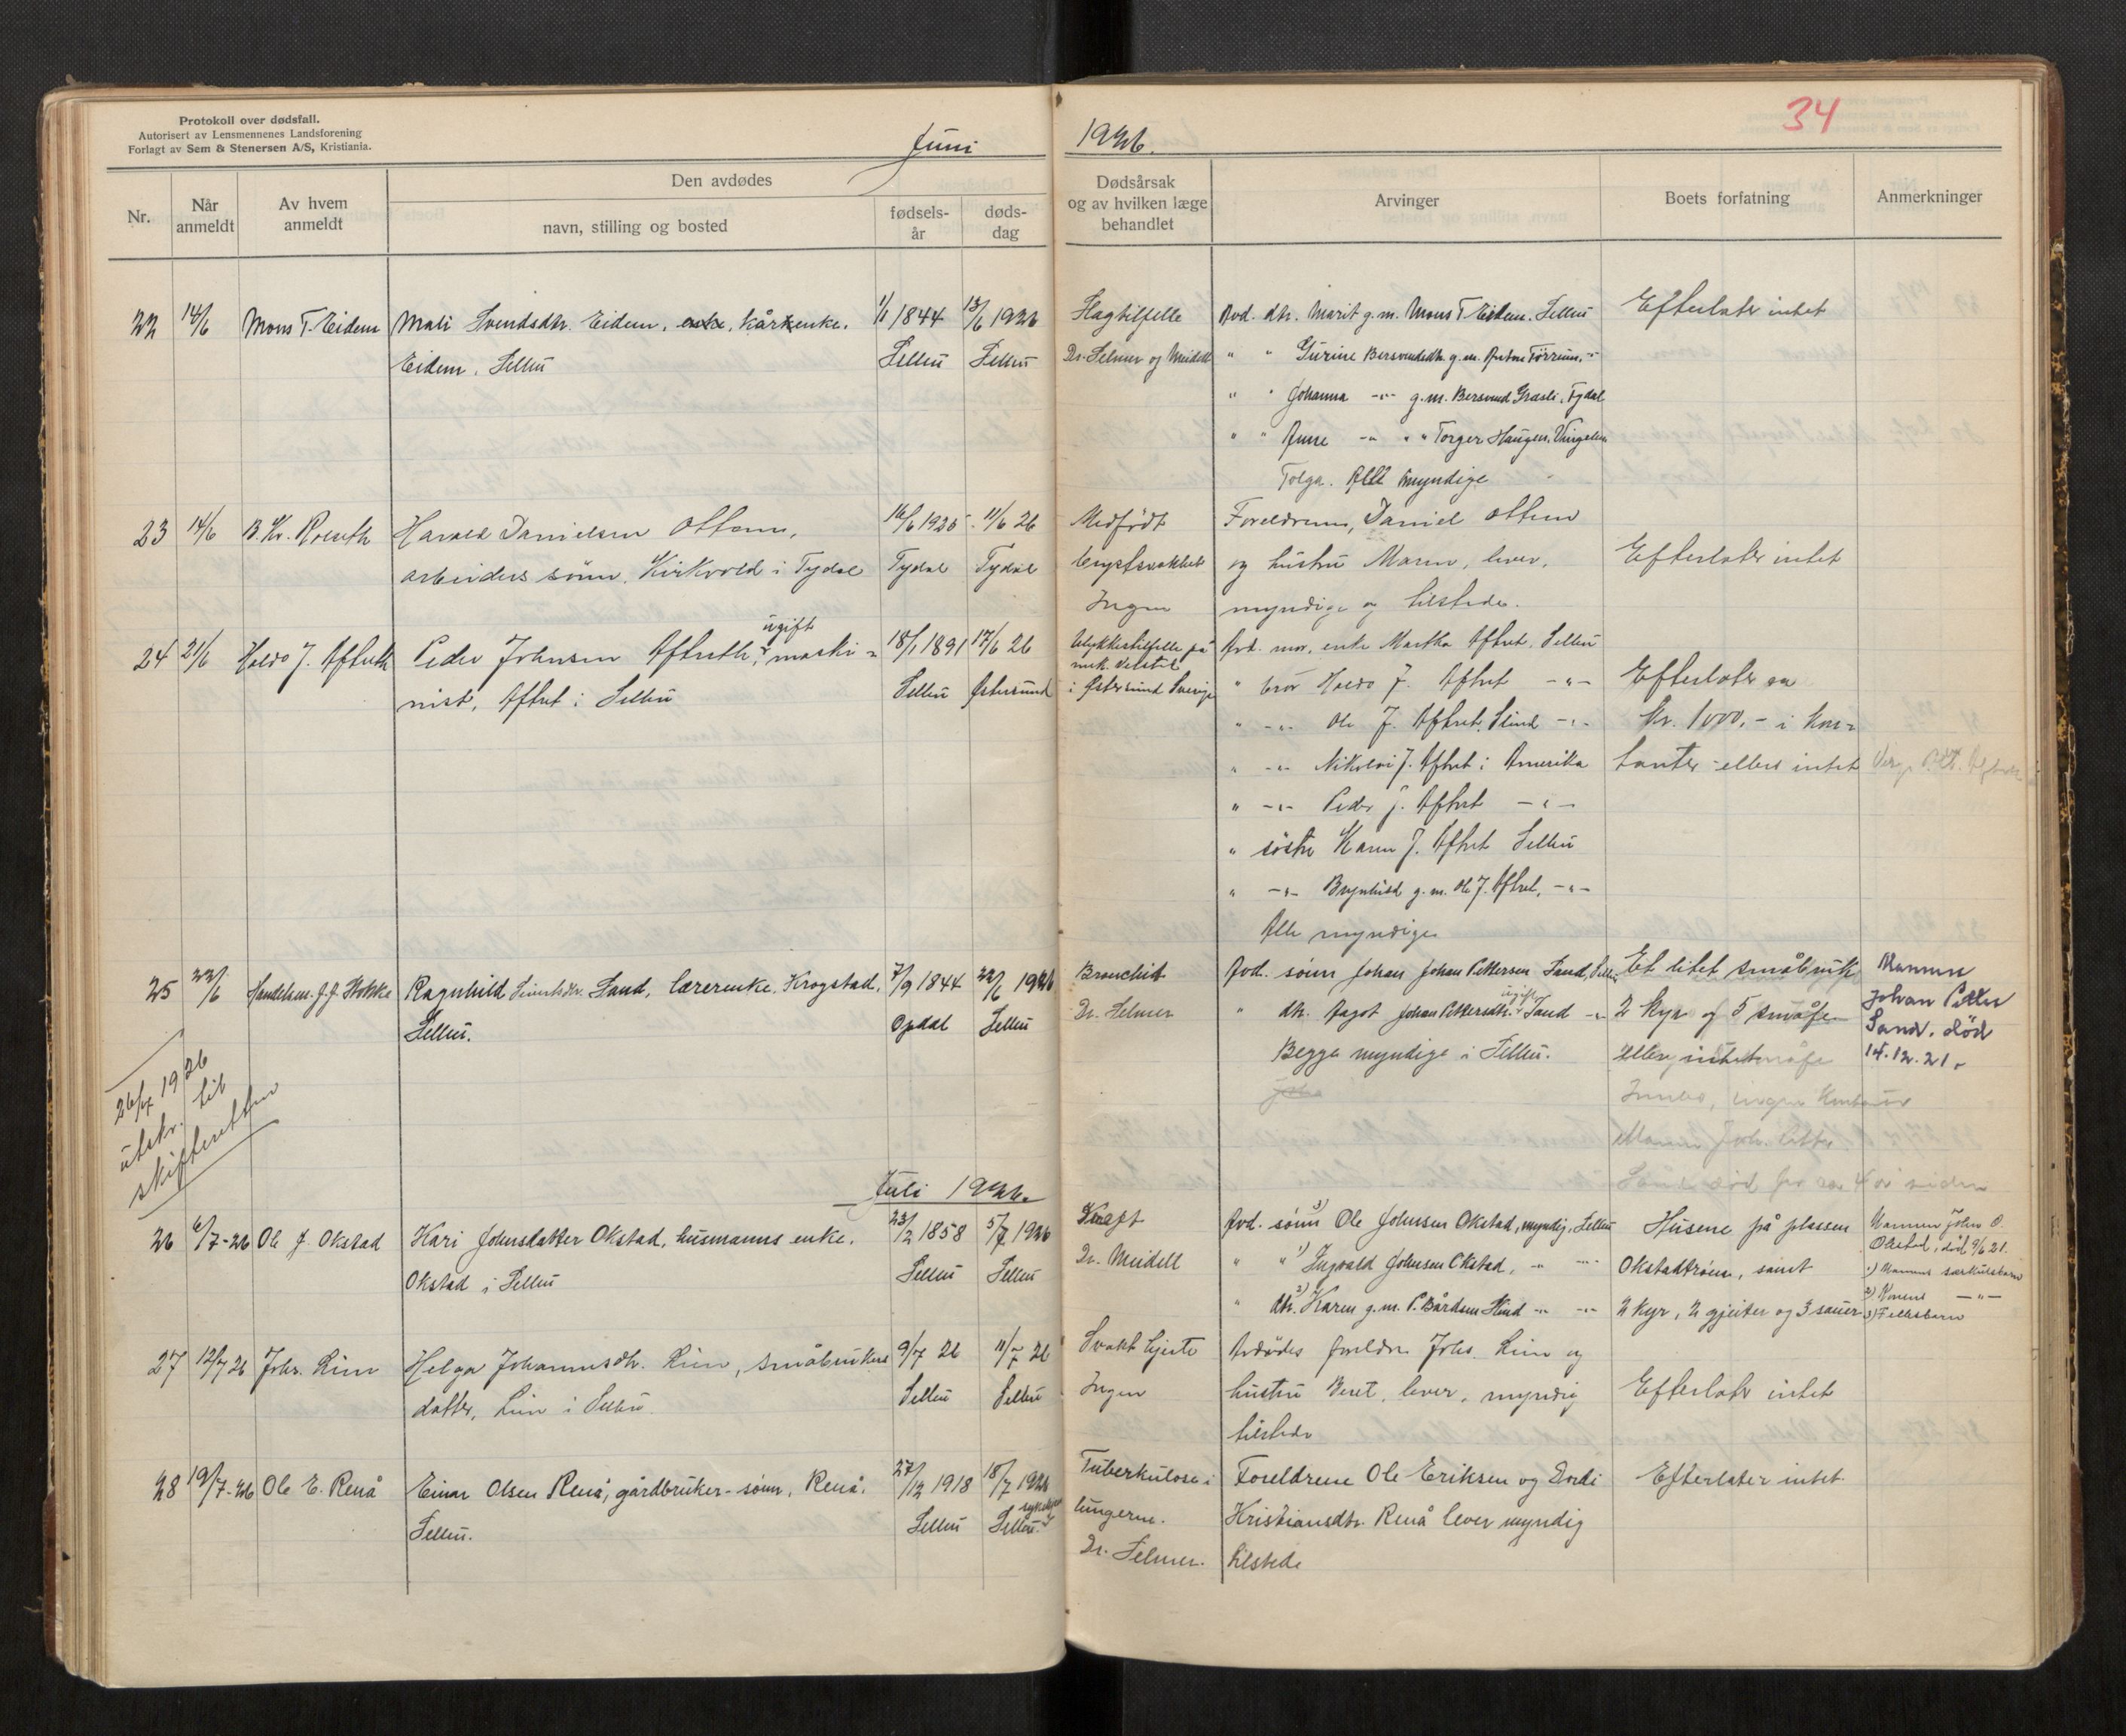 Protokoll over dødsfall.
Autorisert av Lensmennenes Landsforening
Forlagt av Sem & Stenersen A/S, Kristiania.
Juni 1926.
34
Nr.
Når anmeldt
Av hvem anmeldt
Den avdødes
navn, stilling og bosted
fødsels-år
døds-dag
Dødsårsak og av hvilken læge behandlet
Arvinger
Boets forfatning
Anmerkninger
22 14/6 Mons T. Eidem
Mali Svendsdtr. Eidem, enke, kårenke.
Eidem, Selbu
1/1 1844 Selbu
13/6 1926 Selbu
Slagtilfelle
Dr. Selmer og Meidell
Avd. dtr. Marit g.m. Mons T Eidem, Selbu
" " Gurine Bersvendsdtr. g.m. Anton Förrum. -"-
" " Johanna -"- g.m. Bersvend Græsli, Tydal
" " Anne -"- " " Torger Haugen, Vingelen
Tolga. Alle myndige
Efterlater intet
23 14/6 B. Kr. Rolseth
Harald Danielsen Ottem,
arbeiders sønn, Kirkvold i Tydal
16/6 1925 Tydal
11/6 26 Tydal
Medfødt
brystsvakhet
Ingen
Foreldrene, Daniel Ottem
og hustru Maren, lever,
myndige og tilstede.
Efterlater intet
24 21/6 Haldo J. Aftreth
Peder Johnsen Aftreth, ugift maski-
nist, Aftret i Selbu
18/1 1891 Selbu
17/6 26 Østersund
Ulykkestilfelle på
mek. verksted
i Østersund Sverige
Avd. mor, enke Martha Aftret, Selbu
" bror Haldo J. Aftret -"-
" -"- Ole J. Aftret, Slind -"-
" -"- Nikolai J. Aftret i Amerika
" -"- Peder J. Aftret -"-
" søster Karen J. Aftret Selbu
" -"- Brynhild g.m. Ole J. Aftret, -"-
Alle myndige
Efterlater ca
kr. 1000,- i kon-
tanter - ellers intet
25 22/6 Handelsm. J. J. Stokke
Ragnhild Sand, lærerenke, Krogstad,
Selbu.
7/9 1844 Opdal
22/6 1926 Selbu
Bronchit
Dr. Selmer
Avd. sønn Johan Johan Pettersen Sand, Selbu
" dtr. Aagot Johan Pettersdtr. ugift Sand -"-
Begge myndige i Selbu.
Et litet småbruk
2 kyr og 5 småfe
ellers intet
Innbo, ingen kontanter
Mann Joh. Petter
Sand død for ca 4 år siden
Mannen
Johan Petter
Sand, død
14.12.21.
26/7 1926
utskr. til
skifteretten
Juli 1926.
26 6/7-26 Ole J. Okstad
Kari Johnsdatter Okstad, husmanns enke,
Okstad i Selbu
23/2 1858 Selbu
5/7 1926 Selbu
Kreft
Dr. Meidell
Avd. sønn 3) Ole Johnsen Okstad, myndig, Selbu
" " 1) Ingvald Johnsen Okstad, -"- -"-
" dtr. 2) Karen g.m. P. Bårdsen Slind -"- -"-
Husene på plassen
Okstadtrøen, samt
2 kyr, 2 gjeiter og 3 sauer
Mannen John O.
Okstad, død 9/6 21.
1) Mannens særkulsbarn
2) Konens -"-
3) Fellesbarn
27 12/7 26 Johs. Lien
Helga Johannesdtr. Lien, småbrukers
datter, Lien i Selbu.
9/7 26 Selbu
11/7 26 Selbu
Svakt hjerte
Ingen
Avdødes foreldre Johs. Lien og
hustru Beret, lever, myndig
tilstede
Efterlater intet
28 19/7-26 Ole E. Renå
Einar Olsen Renå, gårdbruker-sønn, Renå.
Selbu.
27/12 1918 Selbu
18/7 1926 Selbu
Tuberkulose i
lungerne.
Dr. Selmer.
Foreldrene Ole Eriksen og Dordi
Kristiansdtr. Renå lever myndig
tilstede
Efterlater intet.